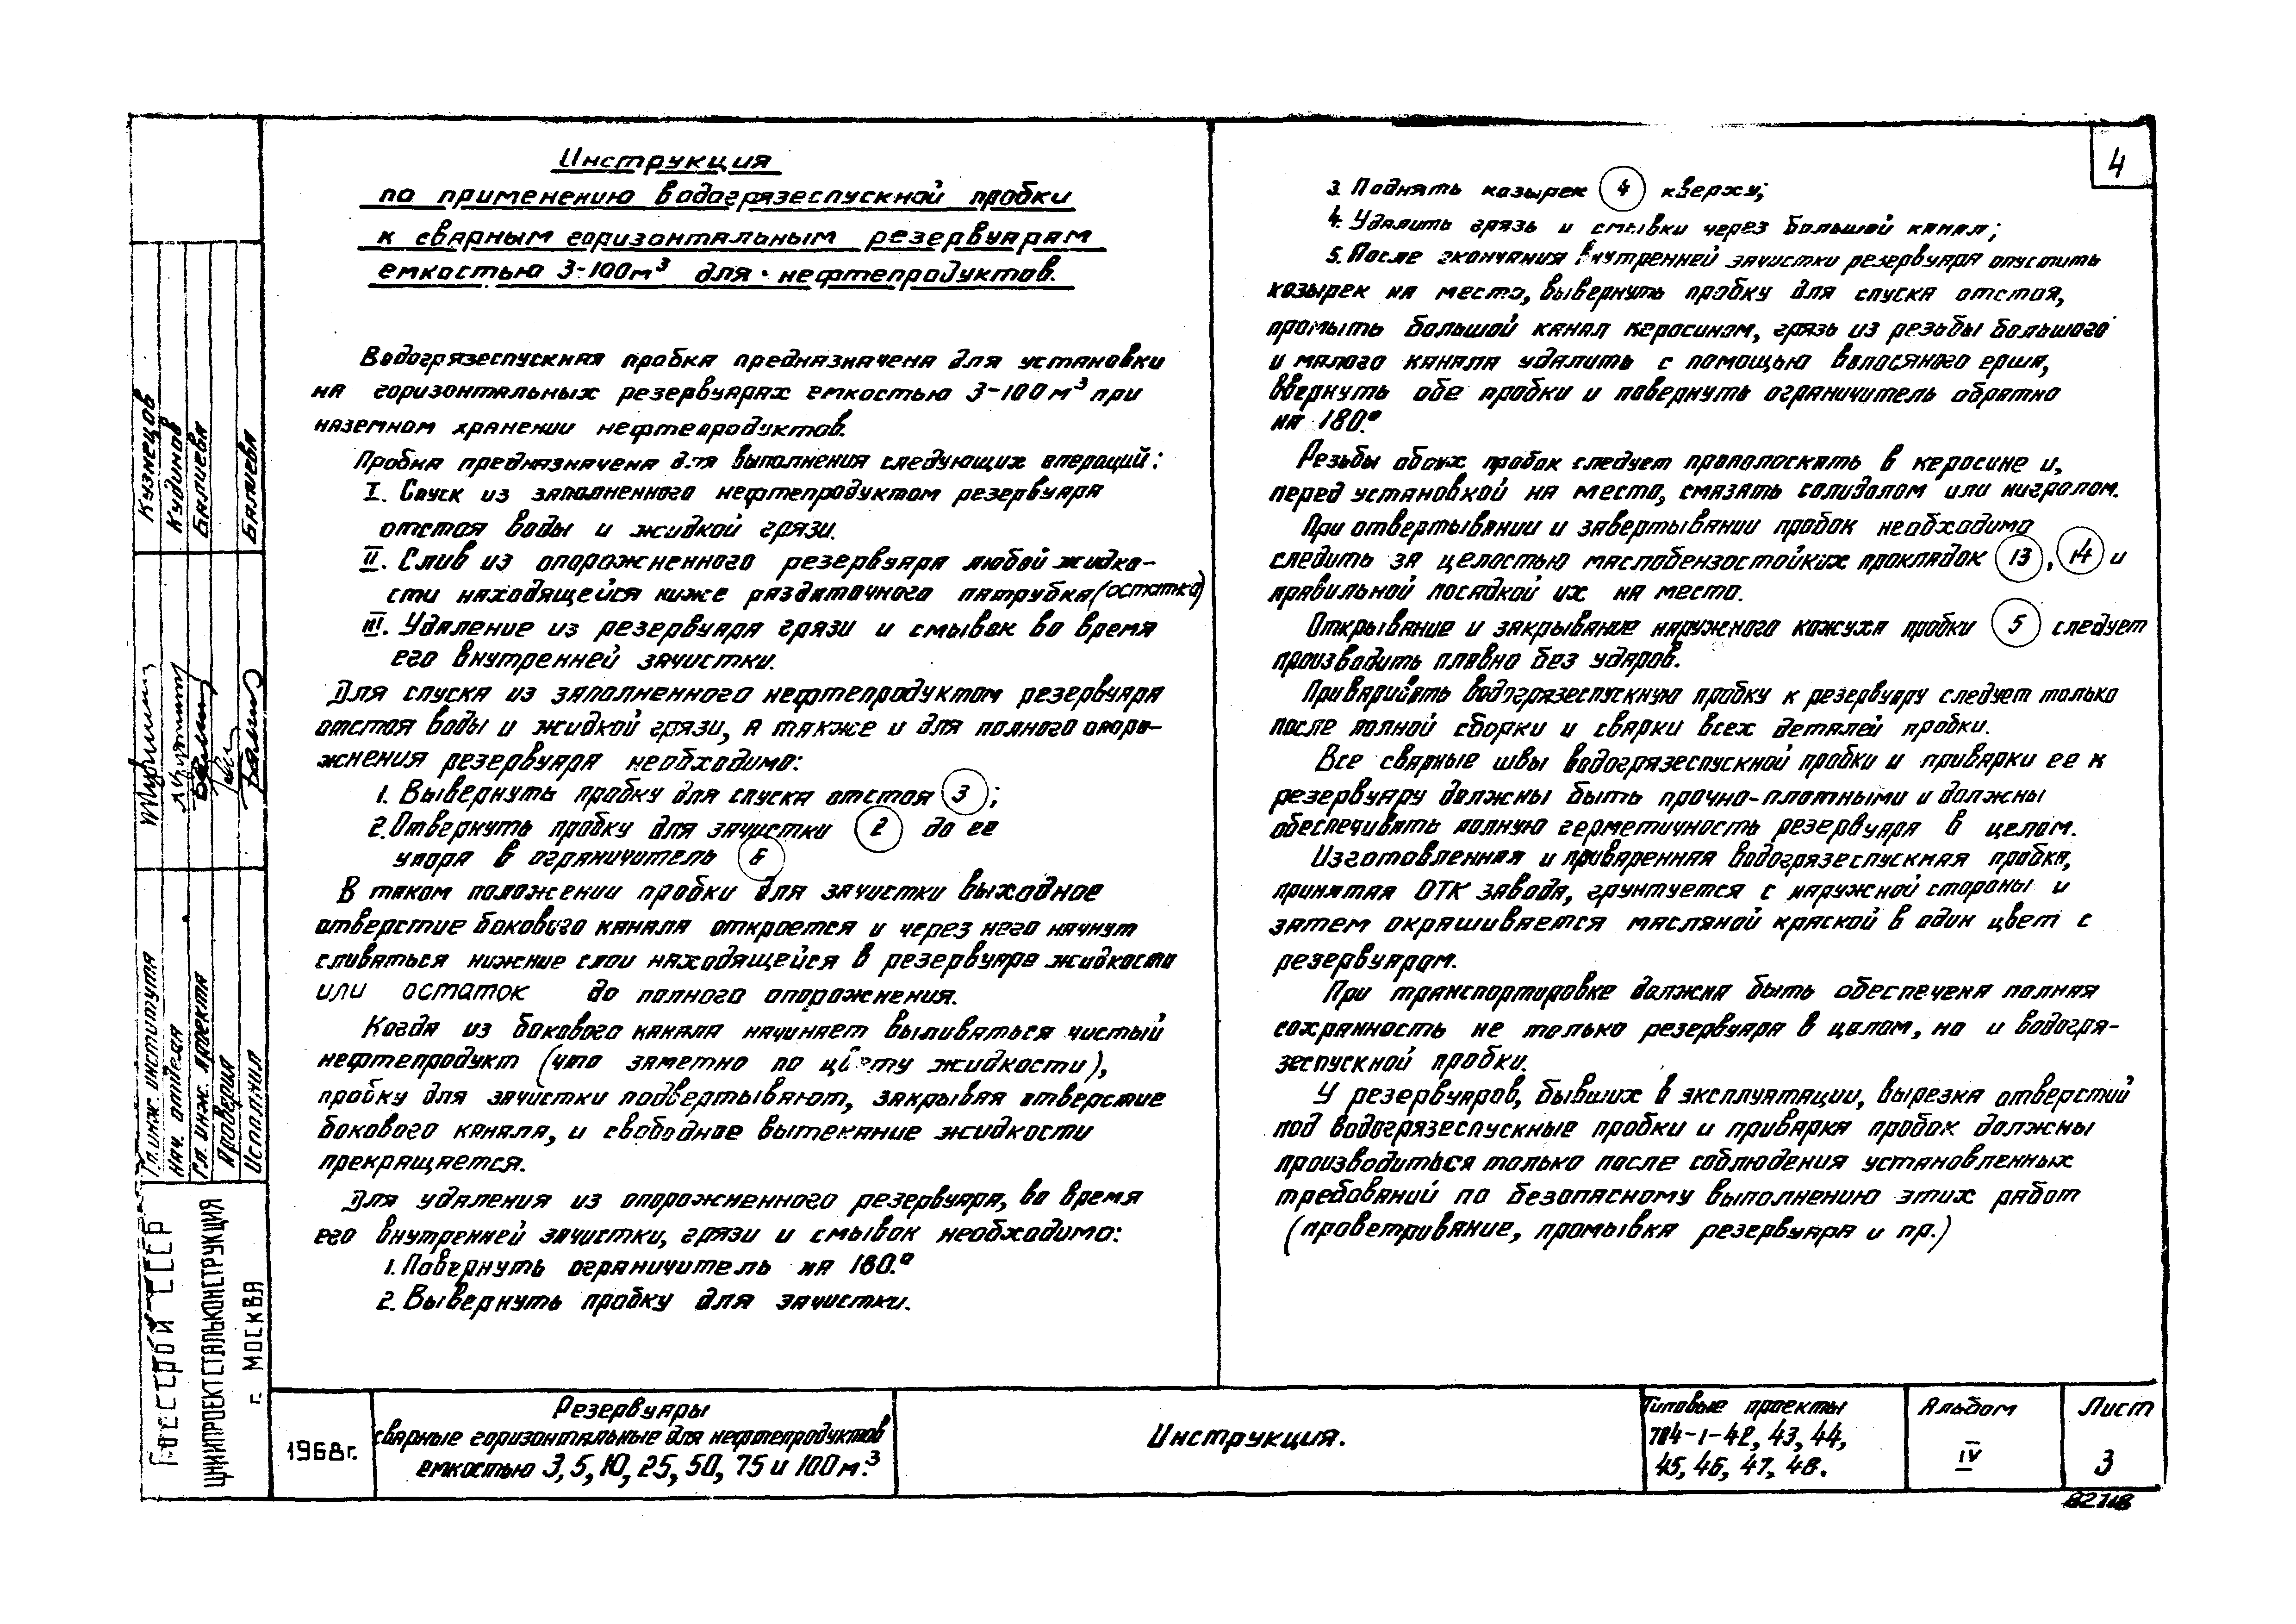 Инструкция
по применению водогрязеспускной пробки
к сварным горизонтальным резервуарам
емкостью 3-100м³ для нефтепродуктов.
Водогрязеспускная пробка предназначена для установки
на горизонтальных резервуарах емкостью 3-100м³ при
наземном хранении нефтепродуктов.
Пробка предназначена для выполнения следующих операций:
I. Спуск из заполненного нефтепродуктом резервуара
отстоя воды и жидкой грязи.
II. Слив из опорожненного резервуара любой жидко-
сти находящейся ниже раздаточного патрубка (остатка)
III. Удаление из резервуара грязи и смывок во время
его внутренней зачистки.
Для спуска из заполненного нефтепродуктом резервуара
отстоя воды и жидкой грязи, а также и для полного опоро-
жнения резервуара необходимо:
1. Вывернуть пробку для спуска отстоя 3;
2. Отвернуть пробку для зачистки 2 до ее
упора в ограничитель 6
В таком положении пробки для зачистки выходное
отверстие бокового канала откроется и через него начнут
сливаться нижние слои находящейся в резервуаре жидкости
или остаток до полного опорожнения.
Когда из бокового канала начинает выливаться чистый
нефтепродукт (что заметно по цвету жидкости),
пробку для зачистки подвертывают, закрывая отверстие
бокового канала, и свободное вытекание жидкости
прекращается.
Для удаления из опорожненного резервуара, во время
его внутренней зачистки, грязи и смывок необходимо:
1. Повернуть ограничитель на 180.°
2. Вывернуть пробку для зачистки.
4
3. Поднять козырек 4 кверху;
4. Удалить грязь и смывки через большой канал;
5. После окончания внутренней зачистки резервуара опустить
козырек на место, вывернуть пробку для спуска отстоя,
промыть большой канал керосином, грязь из резьбы большого
и малого канала удалить с помощью волосяного ерша,
ввернуть обе пробки и повернуть ограничитель обратно
на 180.°
Резьбы обоих пробок следует прополоскать в керосине и,
перед установкой на место, смазать солидолом или нигролом.
При отвертывании и завертывании пробок необходимо
следить за целостью маслобензостойких прокладок 13, 14 и
правильной посадкой их на место.
Открывание и закрывание наружного кожуха пробки 5 следует
производить плавно без ударов.
Приваривать водогрязеспускную пробку к резервуару следует только
после полной сборки и сварки всех деталей пробки.
Все сварные швы водогрязеспускной пробки и приварки ее к
резервуару должны быть прочно-плотными и должны
обеспечивать полную герметичность резервуара в целом.
Изготовленная и приваренная водогрязеспускная пробка,
принятая ОТК завода, грунтуется с наружной стороны и
затем окрашивается масляной краской в один цвет с
резервуаром.
При транспортировке должна быть обеспечена полная
сохранность не только резервуара в целом, но и водогря-
зеспускной пробки.
У резервуаров, бывших в эксплуатации, вырезка отверстий
под водогрязеспускные пробки и приварка пробок должны
производиться только после соблюдения установленных
требований по безопасному выполнению этих работ
(проветривание, промывка резервуара и пр.)
Гл. инж. института
Кузнецов
Нач. отдела
Кудинов
Гл. инж. проекта
Балиева
Проверил
Исполнил
Балиева
Госстрой СССР
ЦНИИПРОЕКТСТАЛЬКОНСТРУКЦИЯ
г. МОСКВА
1968г.
Резервуары
сварные горизонтальные для нефтепродуктов
емкостью 3, 5, 10, 25, 50, 75 и 100м.³
Инструкция.
Типовые проекты
704-1-42, 43, 44,
45, 46, 47, 48.
Альбом
IV
Лист
3